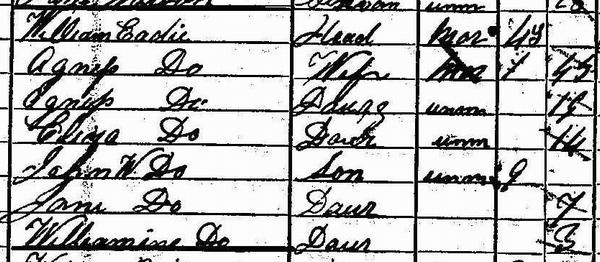 Servan unm
William Eadie Head Mar 43
Agness Do Wife Mar 43
Agness Do Daug unm
Eliza Do Daur unm 14
John W Do Son unm 9
Jane Do Daur 7
Williamine Do Daur 3